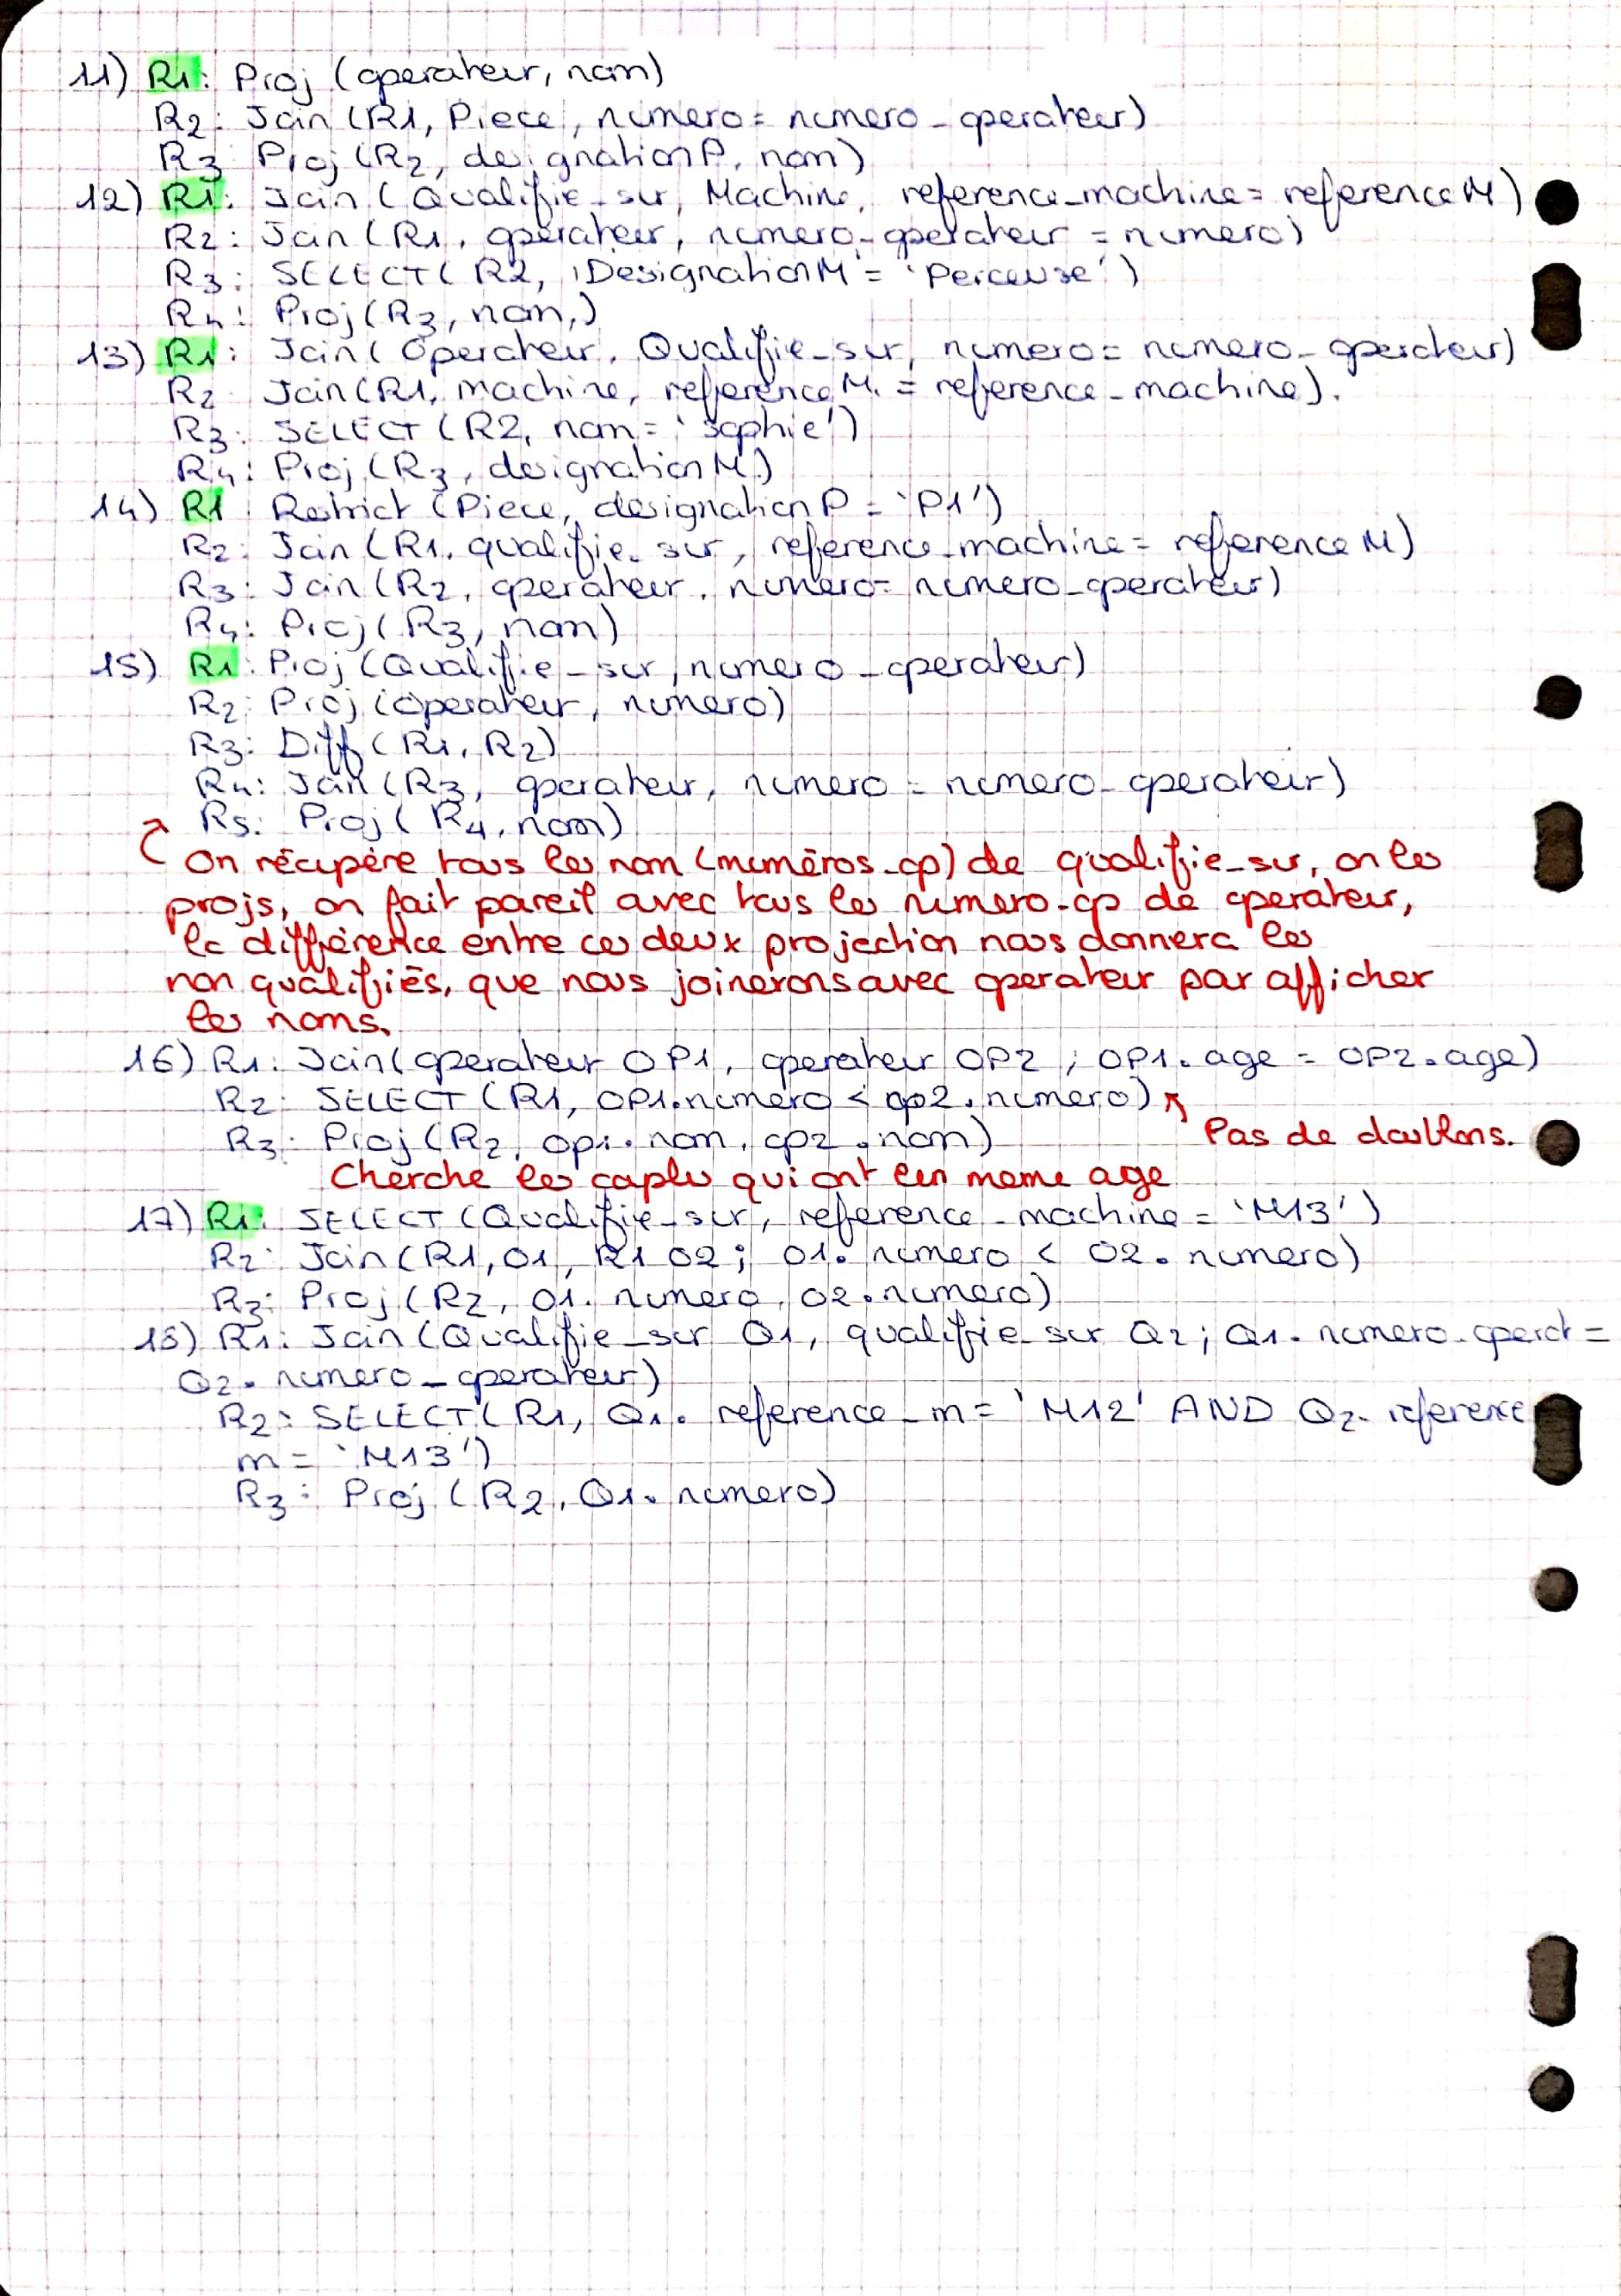 11) R1: Proj (operateur, nom)
R2: Join (R1, Piece, numero = numero_operateur)
R3 Proj (R2, designationP, nom)
12) R1: Join (Qualifie_sur, Machine, reference_machine = referenceM)
R2: Join (R1, operateur, numero_operateur = numero)
R3: SELECT (R2, DesignationM = 'Perceuse')
R4: Proj (R3, nom,)
13) R1: Join (Operateur, Qualifie_sur, numero = numero_operateur)
R2 Join (R1, machine, referenceM. = reference_machine).
R3: SELECT (R2, nom = 'sophie')
R4: Proj (R3, designationM)
14) R1 Restrict (Piece, designationP = 'P1')
R2: Join (R1, qualifie_sur, reference_machine = referenceM)
R3: Join (R2, operateur, numero = numero_operateur)
R4: Proj (R3, nom)
15) R1: Proj (Qualifie_sur, numero_operateur)
R2: Proj (operateur, numero)
R3: Diff (R1, R2)
R4: Join (R3, operateur, numero = numero_operateur)
R5: Proj (R4, nom)
On récupère tous les nom (numéros_op) de qualifie_sur, on les
projs, on fait pareil avec tous les numero_op de operateur,
la différence entre ces deux projection nous donnera les
non qualifiés, que nous joinerons avec operateur par afficher
les noms.
16) R1: Join (operateur OP1, operateur OP2; OP1.age = OP2.age)
R2: SELECT (R1, OP1.numero < op2.numero)
R3: Proj (R2, op1.nom, op2.nom)
Pas de doublons.
Cherche les couples qui ont leur meme age
17) R1: SELECT (Qualifie_sur, reference_machine = 'M13')
R2: Join (R1, O1, R1 O2; O1.numero < O2.numero)
R3: Proj (R2, O1.numero, O2.numero)
18) R1: Join (Qualifie_sur Q1, qualifie_sur Q2; Q1.numero_operat =
Q2.numero_operateur)
R2: SELECT (R1, Q1.reference_m = 'M12' AND Q2.reference
m = 'M13')
R3: Proj (R2, Q1.numero)